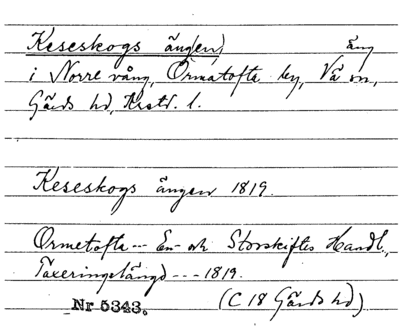 Keseskogs ängen) äng
i Norre vång, Ormatofta by, Vä sn,
Gärds hd, Krstd. l.
Keseskogs ängen 1819.
Ormetofta -- En- och Storskiftes Handl.,
Taxeringslängd --- 1819.
Nr 5343. (C 18 Gärds hd)